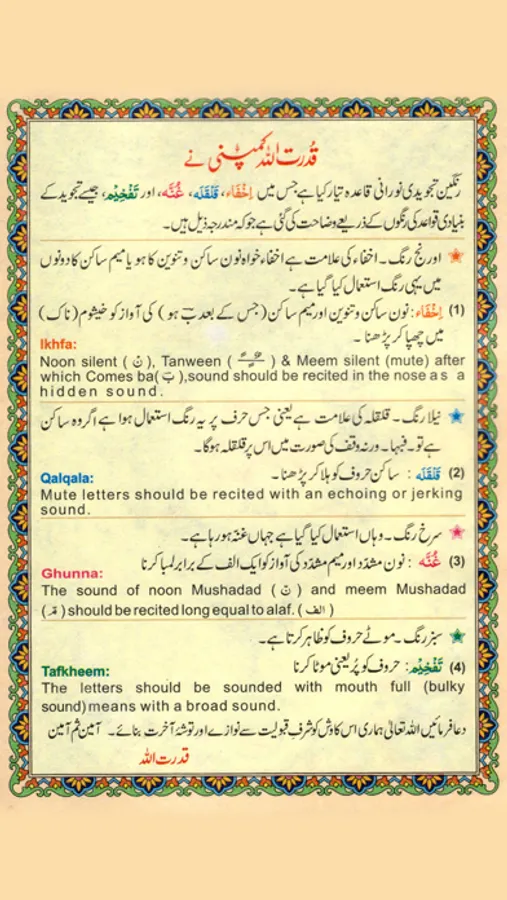 قُدرت اللہ کمپنی نے
رنگین تجویدی نورانی قاعدہ تیار کیا ہے جس میں اِخْفَاء، قَلْقَلَه، غُنَّه، اور تَفْخِیْم، جیسے تجوید کے
بنیادی قواعد کی رنگوں کے ذریعے وضاحت کی گئی ہے جو کہ مندرجہ ذیل ہیں۔
اورنج رنگ۔ اخفاء کی علامت ہے اخفاء خواہ نون ساکن و تنوین کا ہو یا میم ساکن کا دونوں
میں یہی رنگ استعمال کیا گیا ہے۔
(1) اِخْفَاء: نون ساکن و تنوین اور میم ساکن (جس کے بعد بَ ہو) کی آواز کو خیشوم (ناک)
میں چھپا کر پڑھنا۔
Ikhfa:
Noon silent ( نْ ), Tanween ( ـًـٍـٌ ) & Meem silent (mute) after
which Comes ba( بَ ),sound should be recited in the nose as a
hidden sound.
نیلا رنگ۔ قلقلہ کی علامت ہے یعنی جس حرف پر یہ رنگ استعمال ہوا ہے اگر وہ ساکن
ہے تو۔ فبہا۔ ورنہ وقف کی صورت میں اس پر قلقلہ ہوگا۔
(2) قَلْقَلَه : ساکن حروف کو ہلا کر پڑھنا۔
Qalqala:
Mute letters should be recited with an echoing or jerking
sound.
سرخ رنگ۔ وہاں استعمال کیا گیا ہے جہاں غنہ ہو رہا ہے۔
(3) غُنَّه : نون مشدّد اور میم مشدّد کی آواز کو ایک الف کے برابر لمبا کرنا
Ghunna:
The sound of noon Mushadad ( نّ ) and meem Mushadad
( مّ ) should be recited long equal to alaf. ( الف )
سبز رنگ۔ موٹے حروف کو ظاہر کرتا ہے۔
(4) تَفْخِیْم: حروف کو پُر یعنی موٹا کرنا
Tafkheem:
The letters should be sounded with mouth full (bulky
sound) means with a broad sound.
دعا فرمائیں اللہ تعالیٰ ہماری اس کاوش کو شرفِ قبولیت سے نوازے اور توشۂ آخرت بنائے۔ آمین ثم آمین
قدرت اللہ